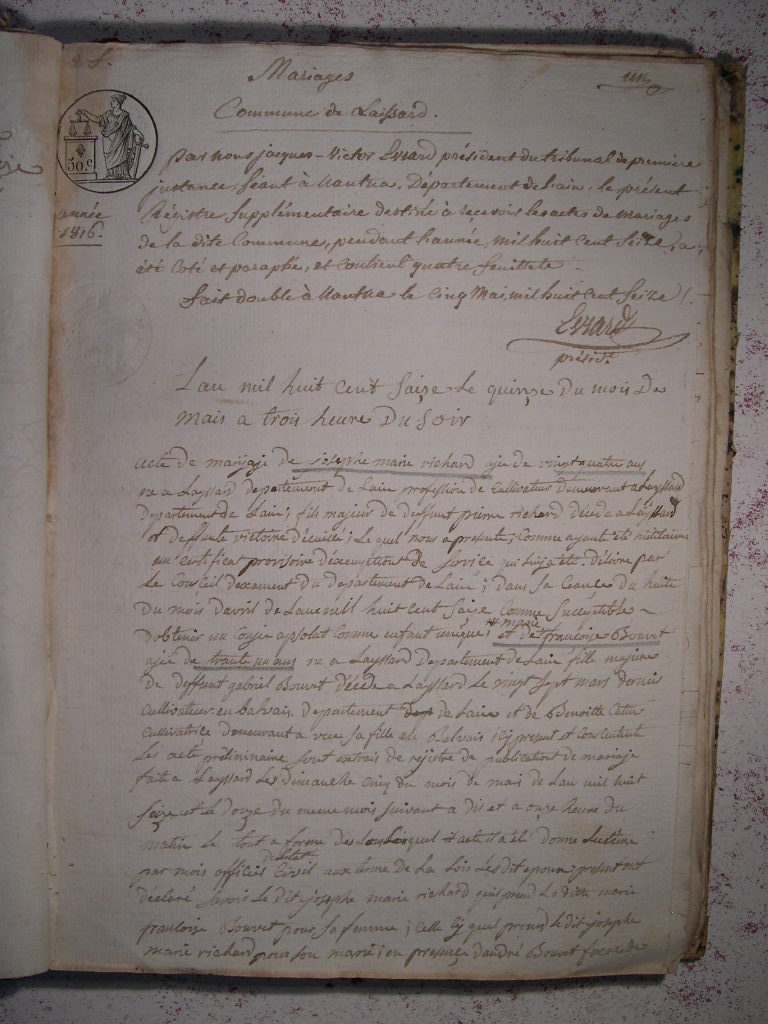 Mariages
Commune de Laissard.
50 c
année
1816.
par nous jacques-Victor Evrard président du tribunal de première
justance, Séant à Nantua, Département de l'ain, le présent
Régistre Supplémentaire destiné à recevoir les actes de mariages
de la dite Commune, pendant l'année, mil huit Cent Seize, a
été Coté et paraphé, et Contient quatre feuillets.
fait double à Nantua le Cinq Mai, mil huit Cent Seize /.
Evrard
présidt.
Lan mil huit Cent Saize le quinze Du mois De
Mais a trois heure Du Soir
acte de mariaje de Josephe marie richard ajé de vingt quatre ans
né a Layssard departement de Lain profession de Cultivateur demeurant a Layssard
departement de Lain ; fils majeur de deffunt pierre richard décédé a Layssard
et deffunte victoire ; Le quel nous a presente, Comme ayant été militaire
un Certificat provisoire de Service qui lui a été délivré par
Le Conseil dexament Du departement de Lain ; dans sa Ceance du huite
Du mois Davril de Lan mil huit Cent Saize Comme Susceptible
dobtenir un Conjé absolut Comme enfant unique ; et de marie francoise Bouvet
ajée de trante un ans né a Layssard Departement de Lain fille majeure
De deffunt gabriel Bouvet décédé a Layssard Le vingt Sept mars dernier
Cultivateur en departement de Lain et de Benoitte
Cultivatrice demeurant a vecu sa fille en ; Cy present et Consentente
Les acte préliminaire Sont extrais de rejistre de publication de mariaje
faite a Layssard Les dimanche Cinq du mois de mais de Lan mil huit
Saize et Le Douze Du meme mois Suivant a dis et a onze heure du
matin Le tout a forme des quel acte il a été donné Lecture
par mois officiés de Letat Civil aux terme de La Lois Les dit epoux present ont
déclaré Savoir Le dit josephe marie richard quil prend La ditte marie
francoise Bouvet pour Sa femme ; Celle Cy quel prend Le dit josephe
marie richard pour Son marié ; en presence dandré Bouvet frere de